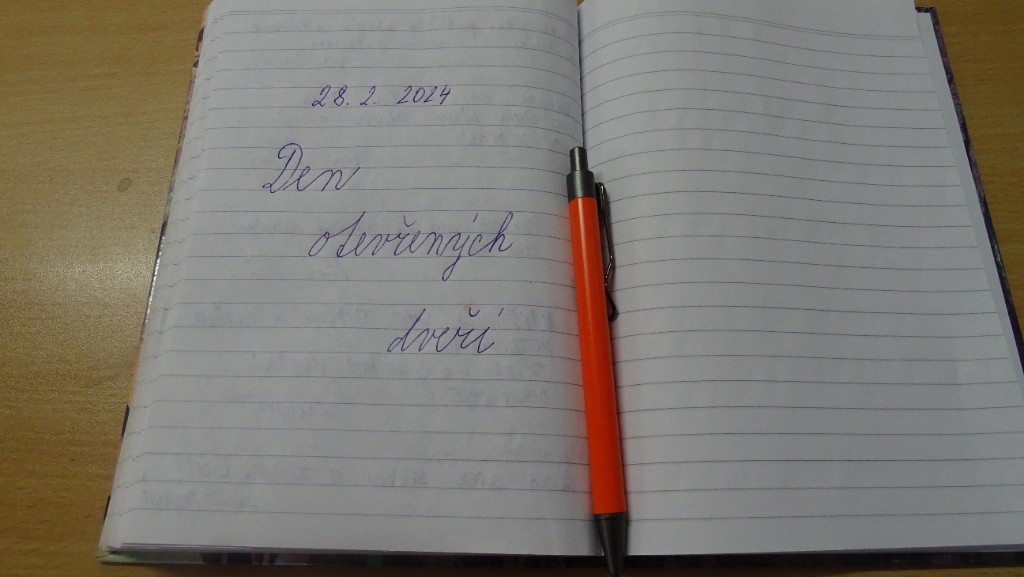 28. 2. 2024
Den
otevřených
dveří